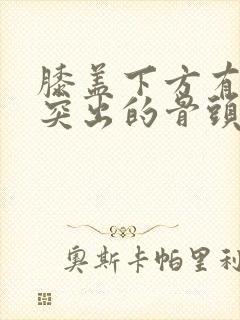 膝盖下方有
突出的骨頭
奥斯卡帕里利